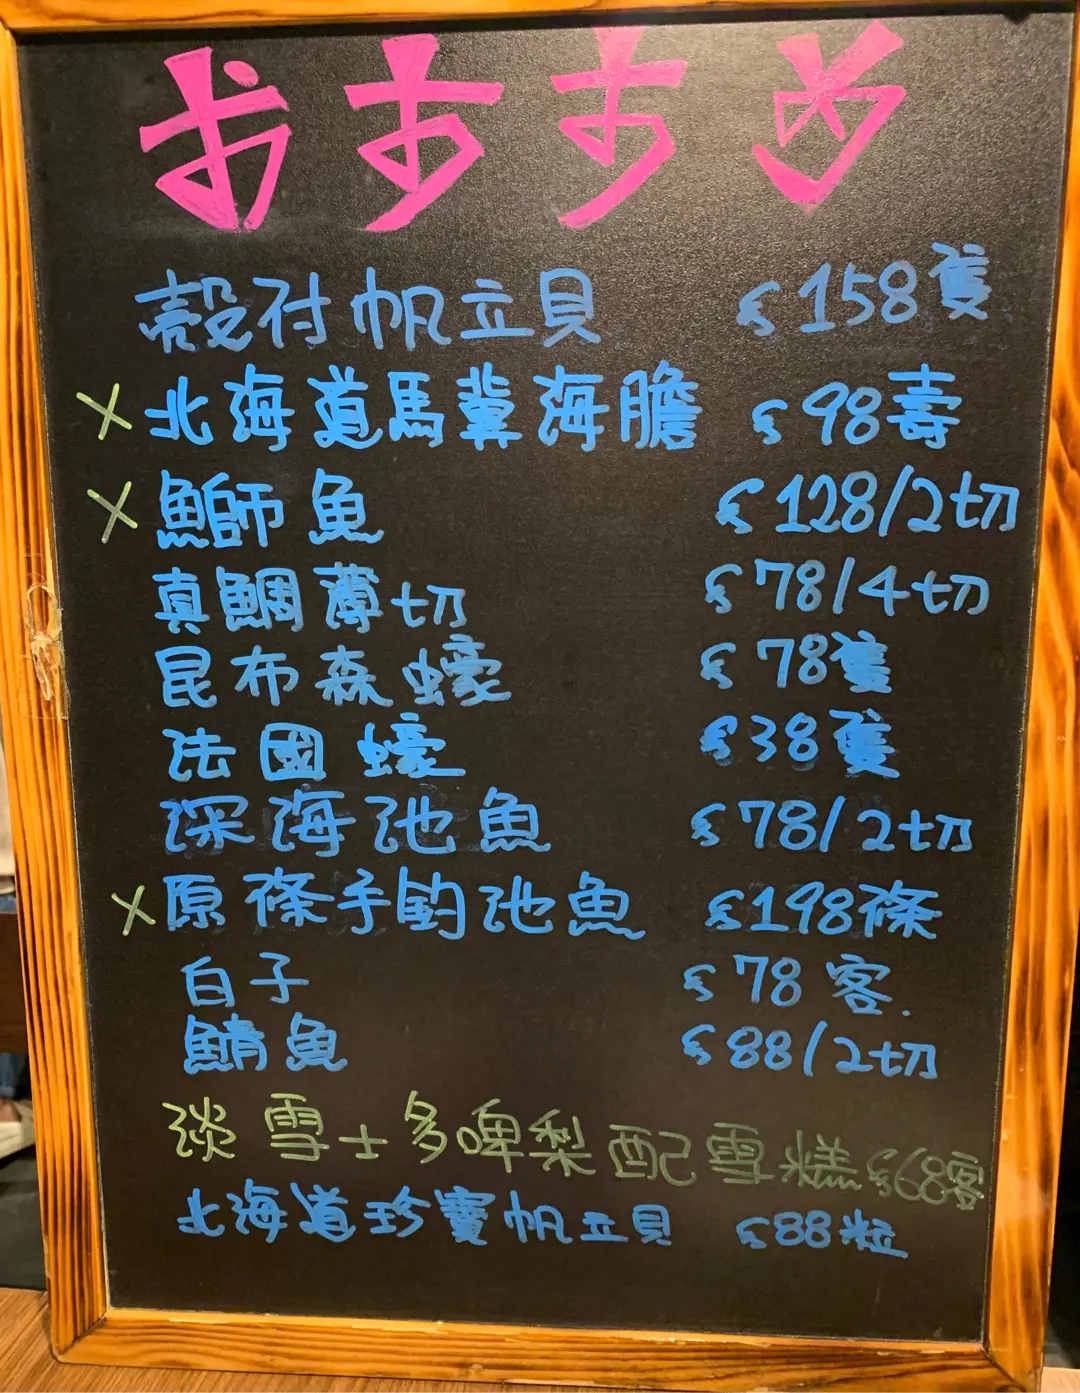 おすすめ
殼付帆立貝 $158隻
X 北海道馬糞海膽 $98壽
X 鰤魚 $128/2切
真鯛薄切 $78/4切
昆布森蠔 $78隻
法國蠔 $38隻
深海池魚 $78/2切
X 原條手釣池魚 $198條
白子 $78客.
鯖魚 $88/2切
淡雪士多啤梨配雪糕 $68客
北海道珍寶帆立貝 $88粒